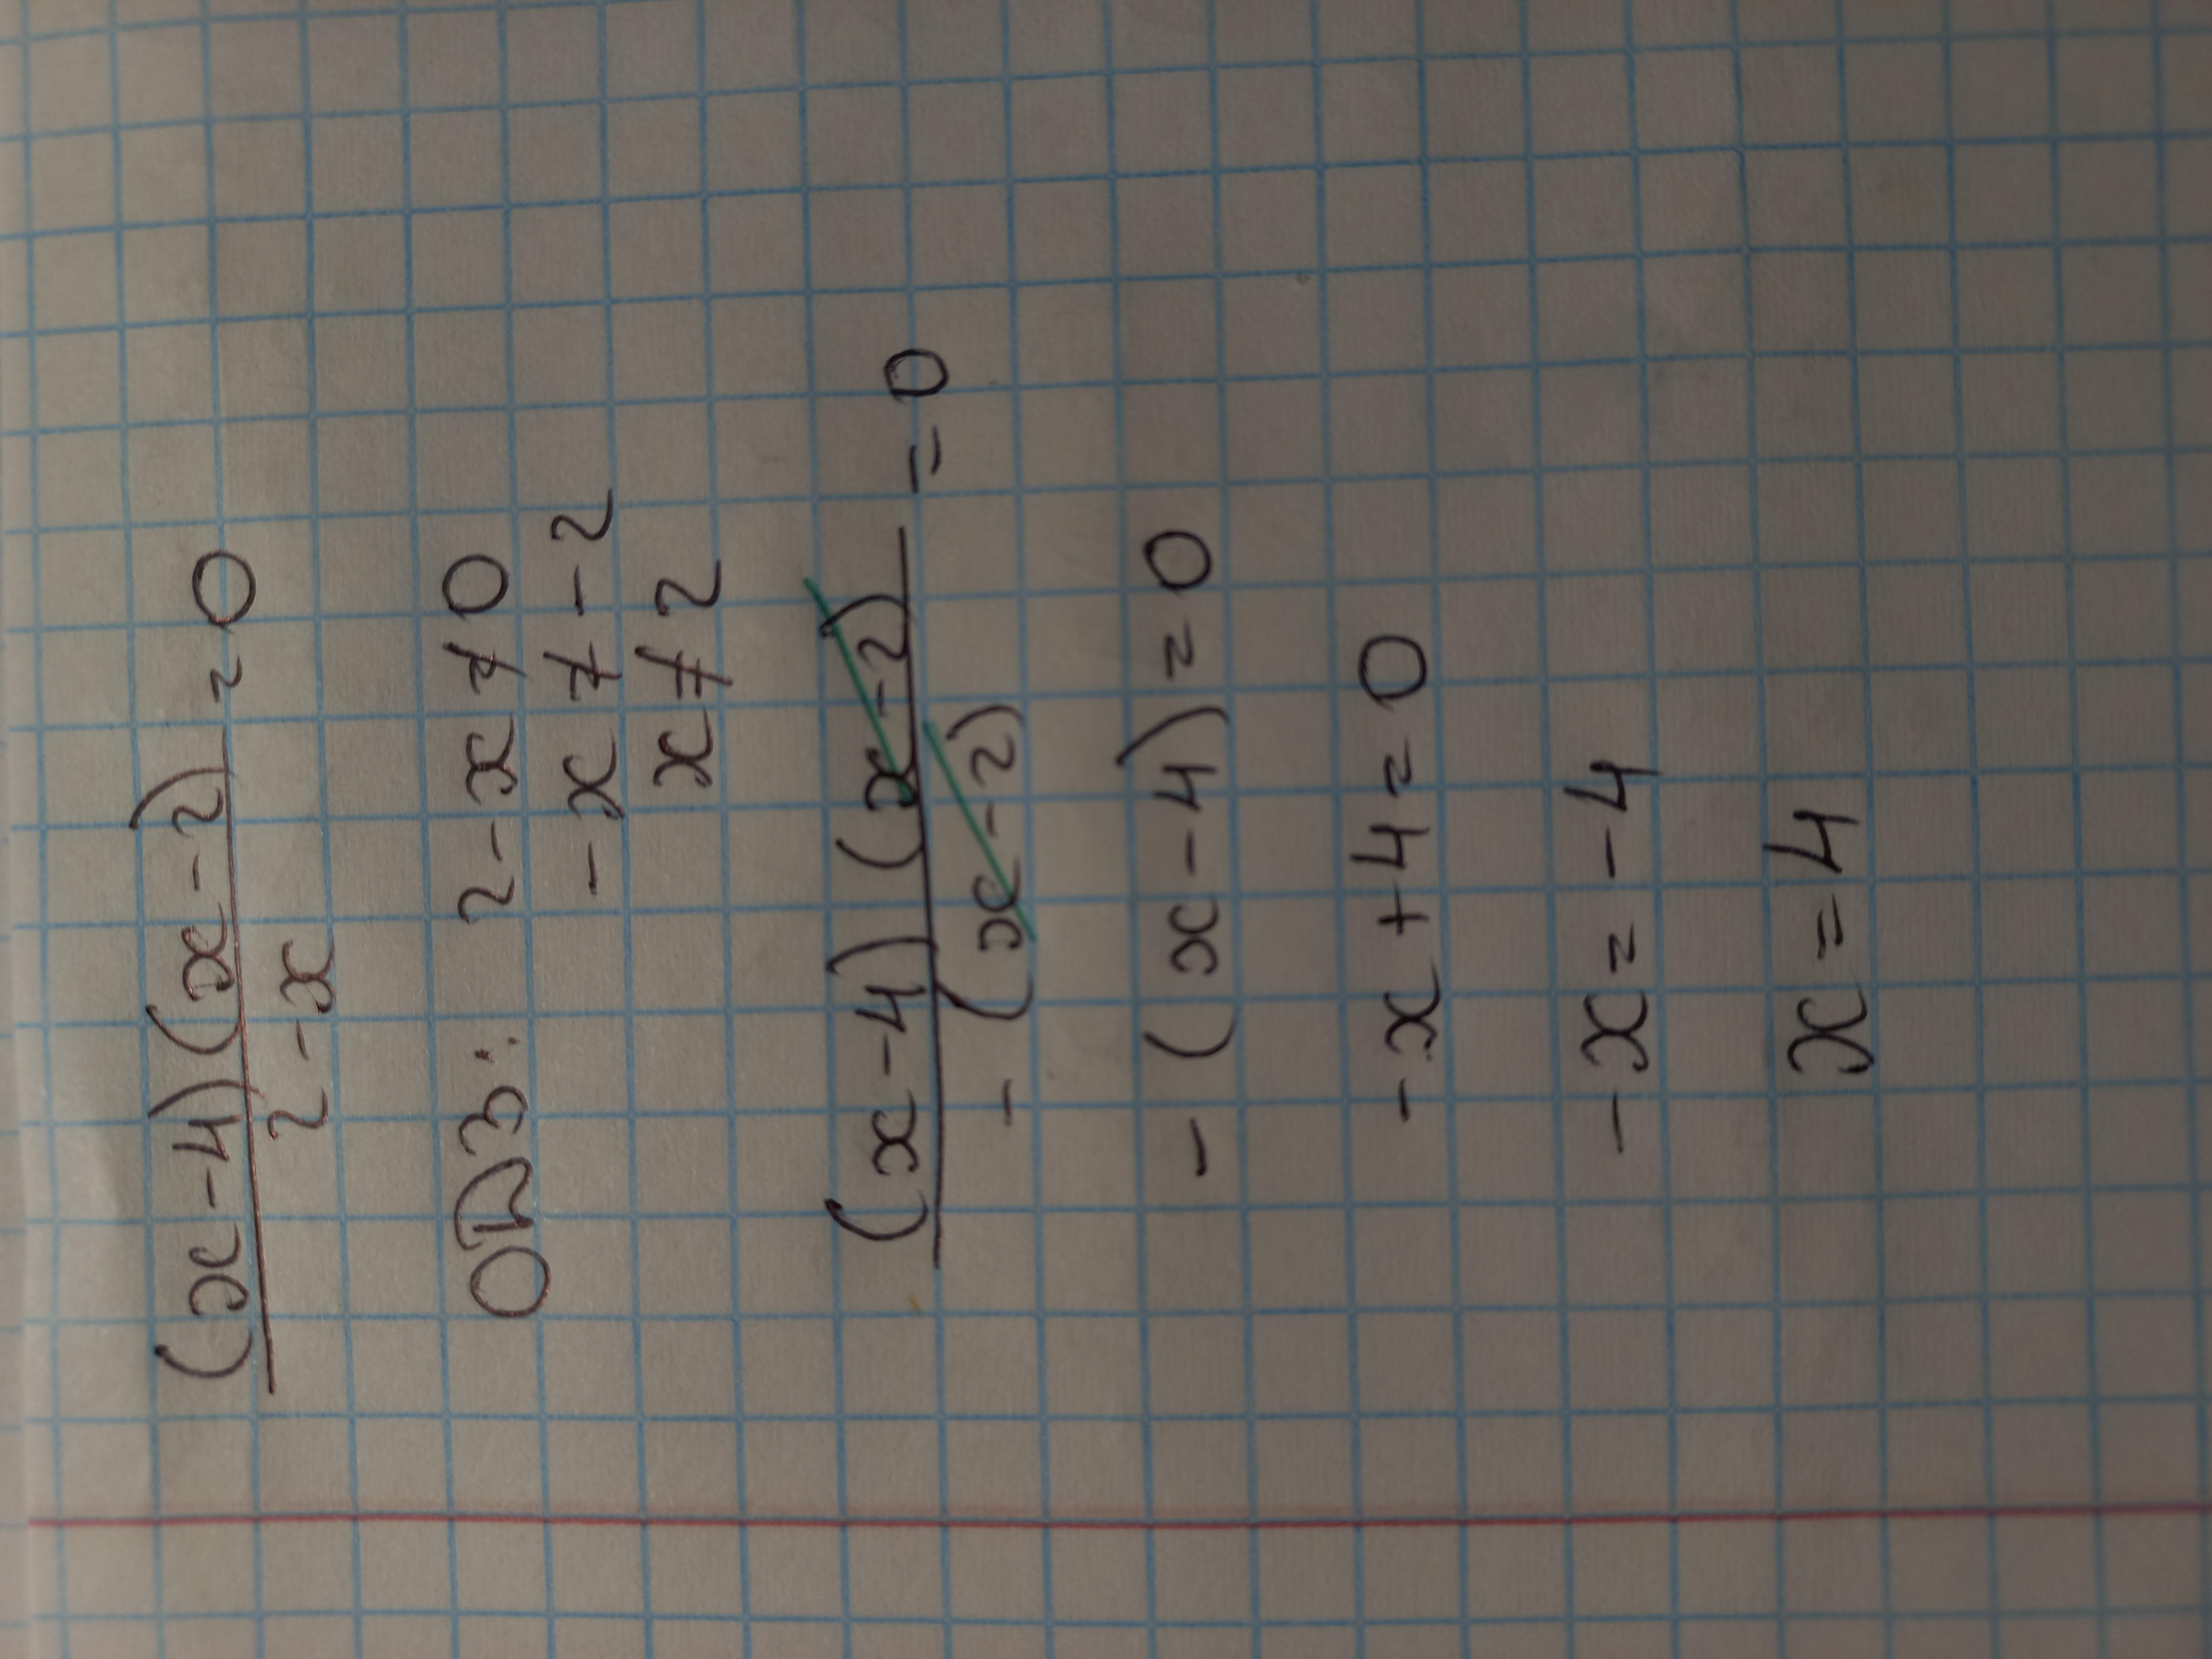 (x-4)(x-2)/2-x = 0
ОДЗ: 2-x≠0
-x≠-2
x≠2
(x-4)(x-2)/-(x-2) = 0
-(x-4)=0
-x+4=0
-x=-4
x=4